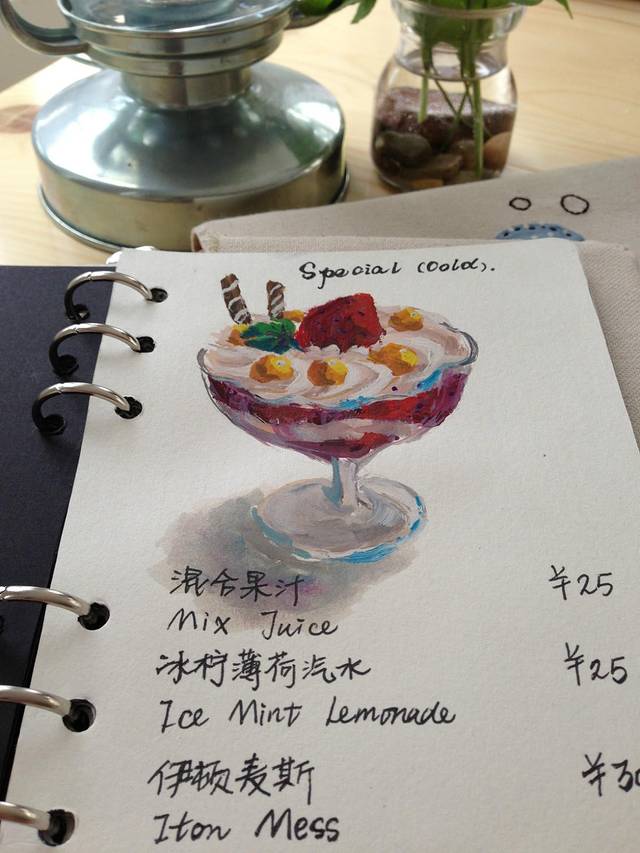 Special (Cold).
混合果汁 ¥25
Mix Juice
冰柠薄荷汽水 ¥25
Ice Mint Lemonade
伊顿麦斯 ¥30
Iton Mess